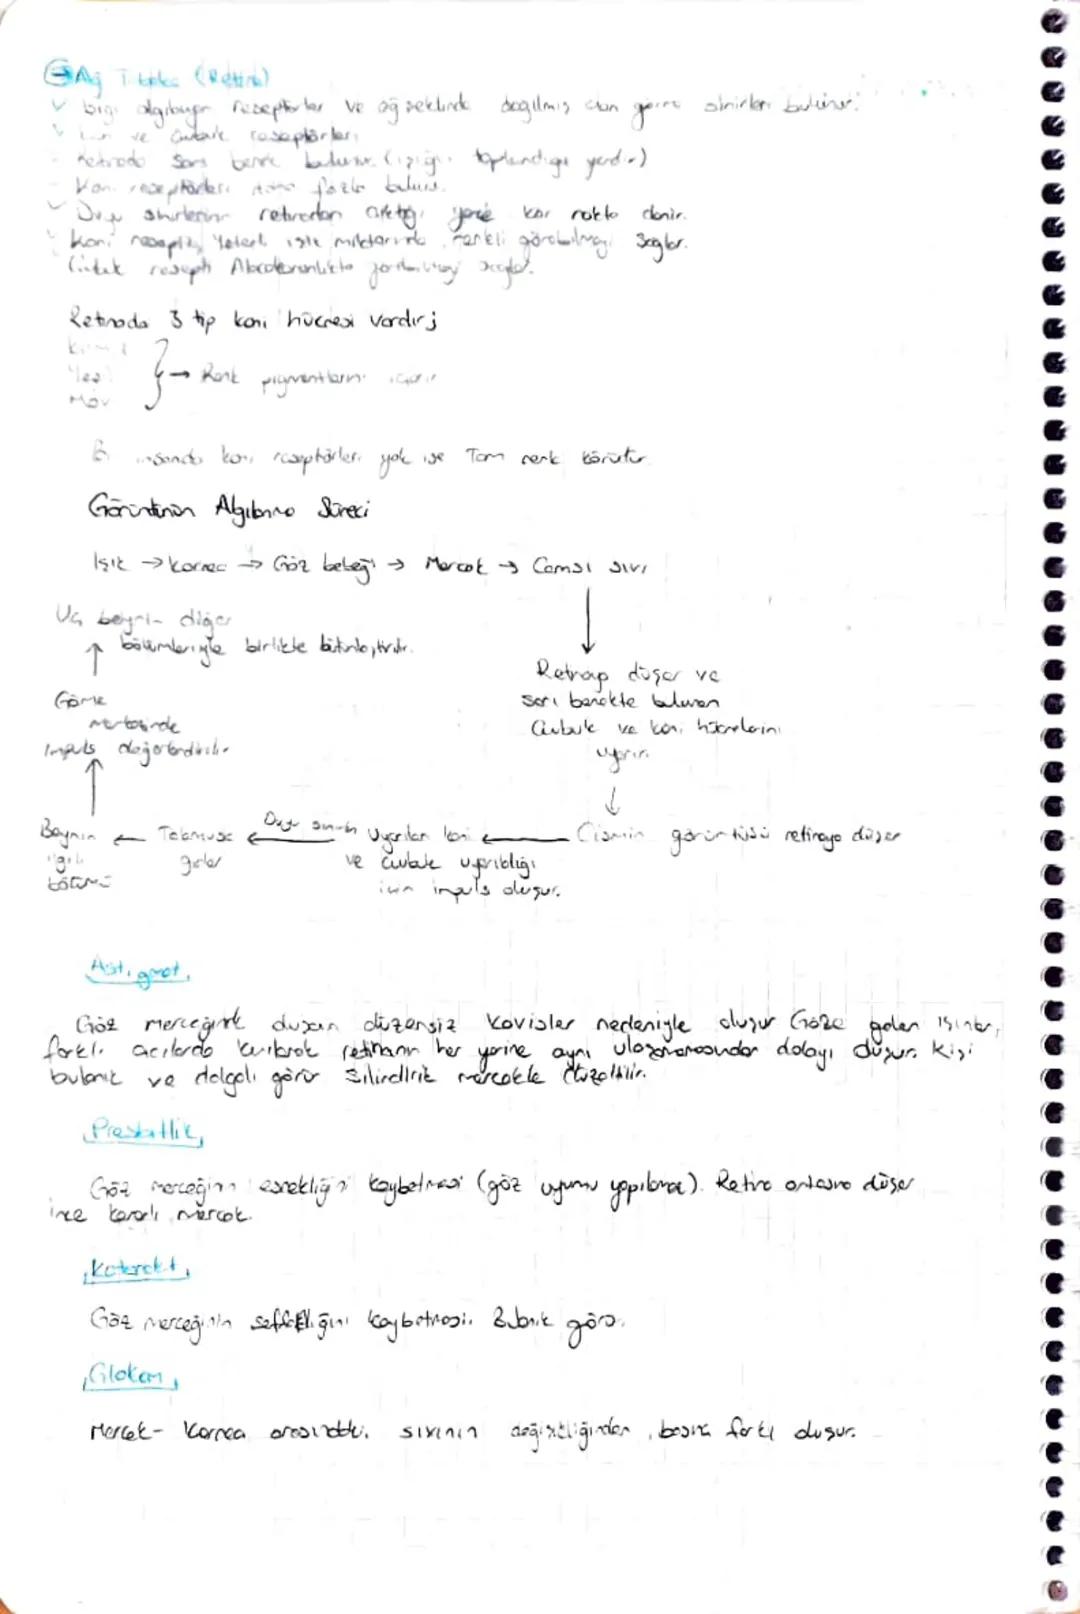 Ağ Tabaka (Retina)
ışığı algılayan reseptörler ve ağ şeklinde dağılmış olan görme sinirleri bulunur.
Koni ve Çubuk reseptörleri
Retinada Sarı benek bulunur. (ışığın toplandığı yerdir)
Koni reseptörleri daha fazla bulunur.
Duyu sinirlerinin retinadan çıktığı yere kör nokta denir.
Koni resept. Yeterli ışık miktarında renkli görebilmeyi Sağlar.
Çubuk resept. Alacakaranlıkta görebilmeyi sağlar.
Retinada 3 tip koni hücresi vardır;
Kırmızı
Yeşil
Mavi
→ Renk pigmentlerini içerir
Bir insanda koni reseptörleri yok ise Tam renk körüdür.
Görüntünün Algılanma Süreci
Işık → Kornea → Göz bebeği → Mercek → Camsı sıvı
Uç beyrin diğer
bölümleriyle birlikte bütünleştirilir.
Retinaya düşer ve
sarı benekte bulunan
Çubuk ve koni hücrelerini
uyarır.
Görme
merkezinde
Impuls değerlendirilir
Cismin görüntüsü retinaya düşer
Uyarılan koni
ve çubuk uyarıldığı
için impuls oluşur.
Duyu siniri
Talamusa
gelir
Beynin
ilgili
bölümü
Astigmat
Göz merceğinde duzensiz kavisler nedeniyle oluşur Göze gelen ışınlar,
farklı açılarda kırılarak retinanın her yerine aynı ulaşamamasından dolayı oluşur. Kişi
bulanık ve dalgalı görür Silindirik mercekle düzeltilir.
Presbitlik
Göz merceğinin esnekliğini kaybetmesi (göz uyumu yapılamaz). Retina arkasına düşer
ince kenarlı mercek.
Katarakt
Göz merceğinin saffaflığını kaybetmesi. Bulanık görür.
Glokom
Mercek- Kornea arasındaki sıvının değişikliğinden, basınç farkı oluşur.